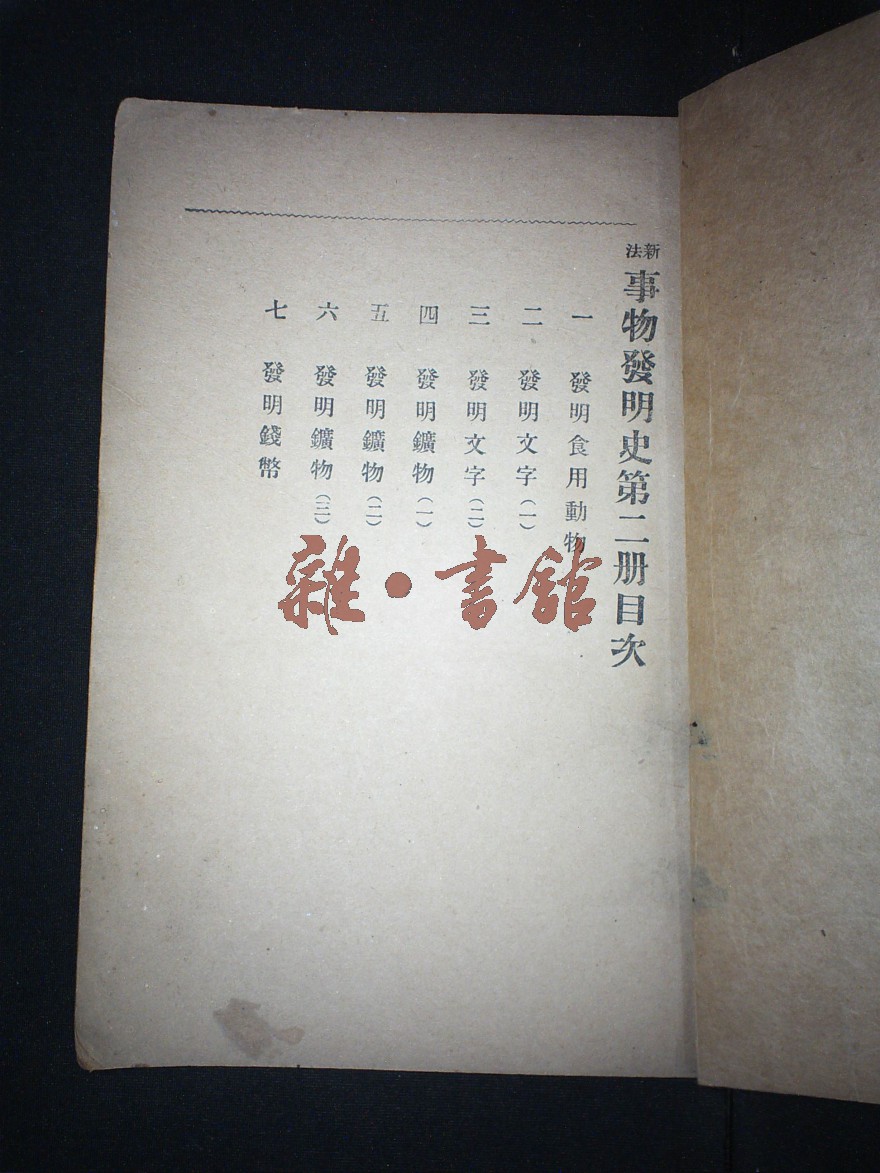 新法
事物發明史第二册目次
一 發明食用動物
二 發明文字(一)
三 發明文字(二)
四 發明鑛物(一)
五 發明鑛物(二)
六 發明鑛物(三)
七 發明錢幣
雜·書館